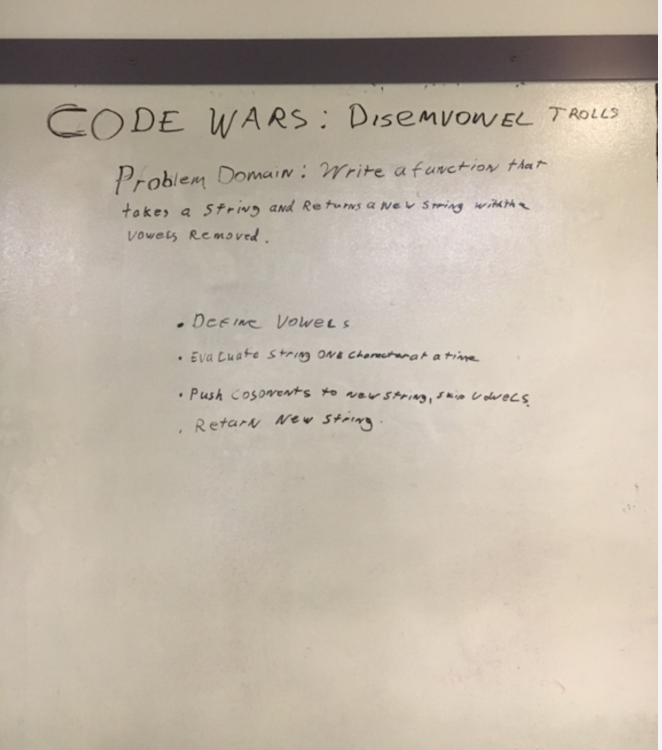 CODE WARS: DISEMVOWEL TROLLS
Problem Domain: Write a function that
takes a string and Returns a New string with the
vowels Removed.
• DEFINE VOWELS
• EVALUATE STRING ONE character at a time
• Push cosonents to new string, skip vowels.
. Return New string.